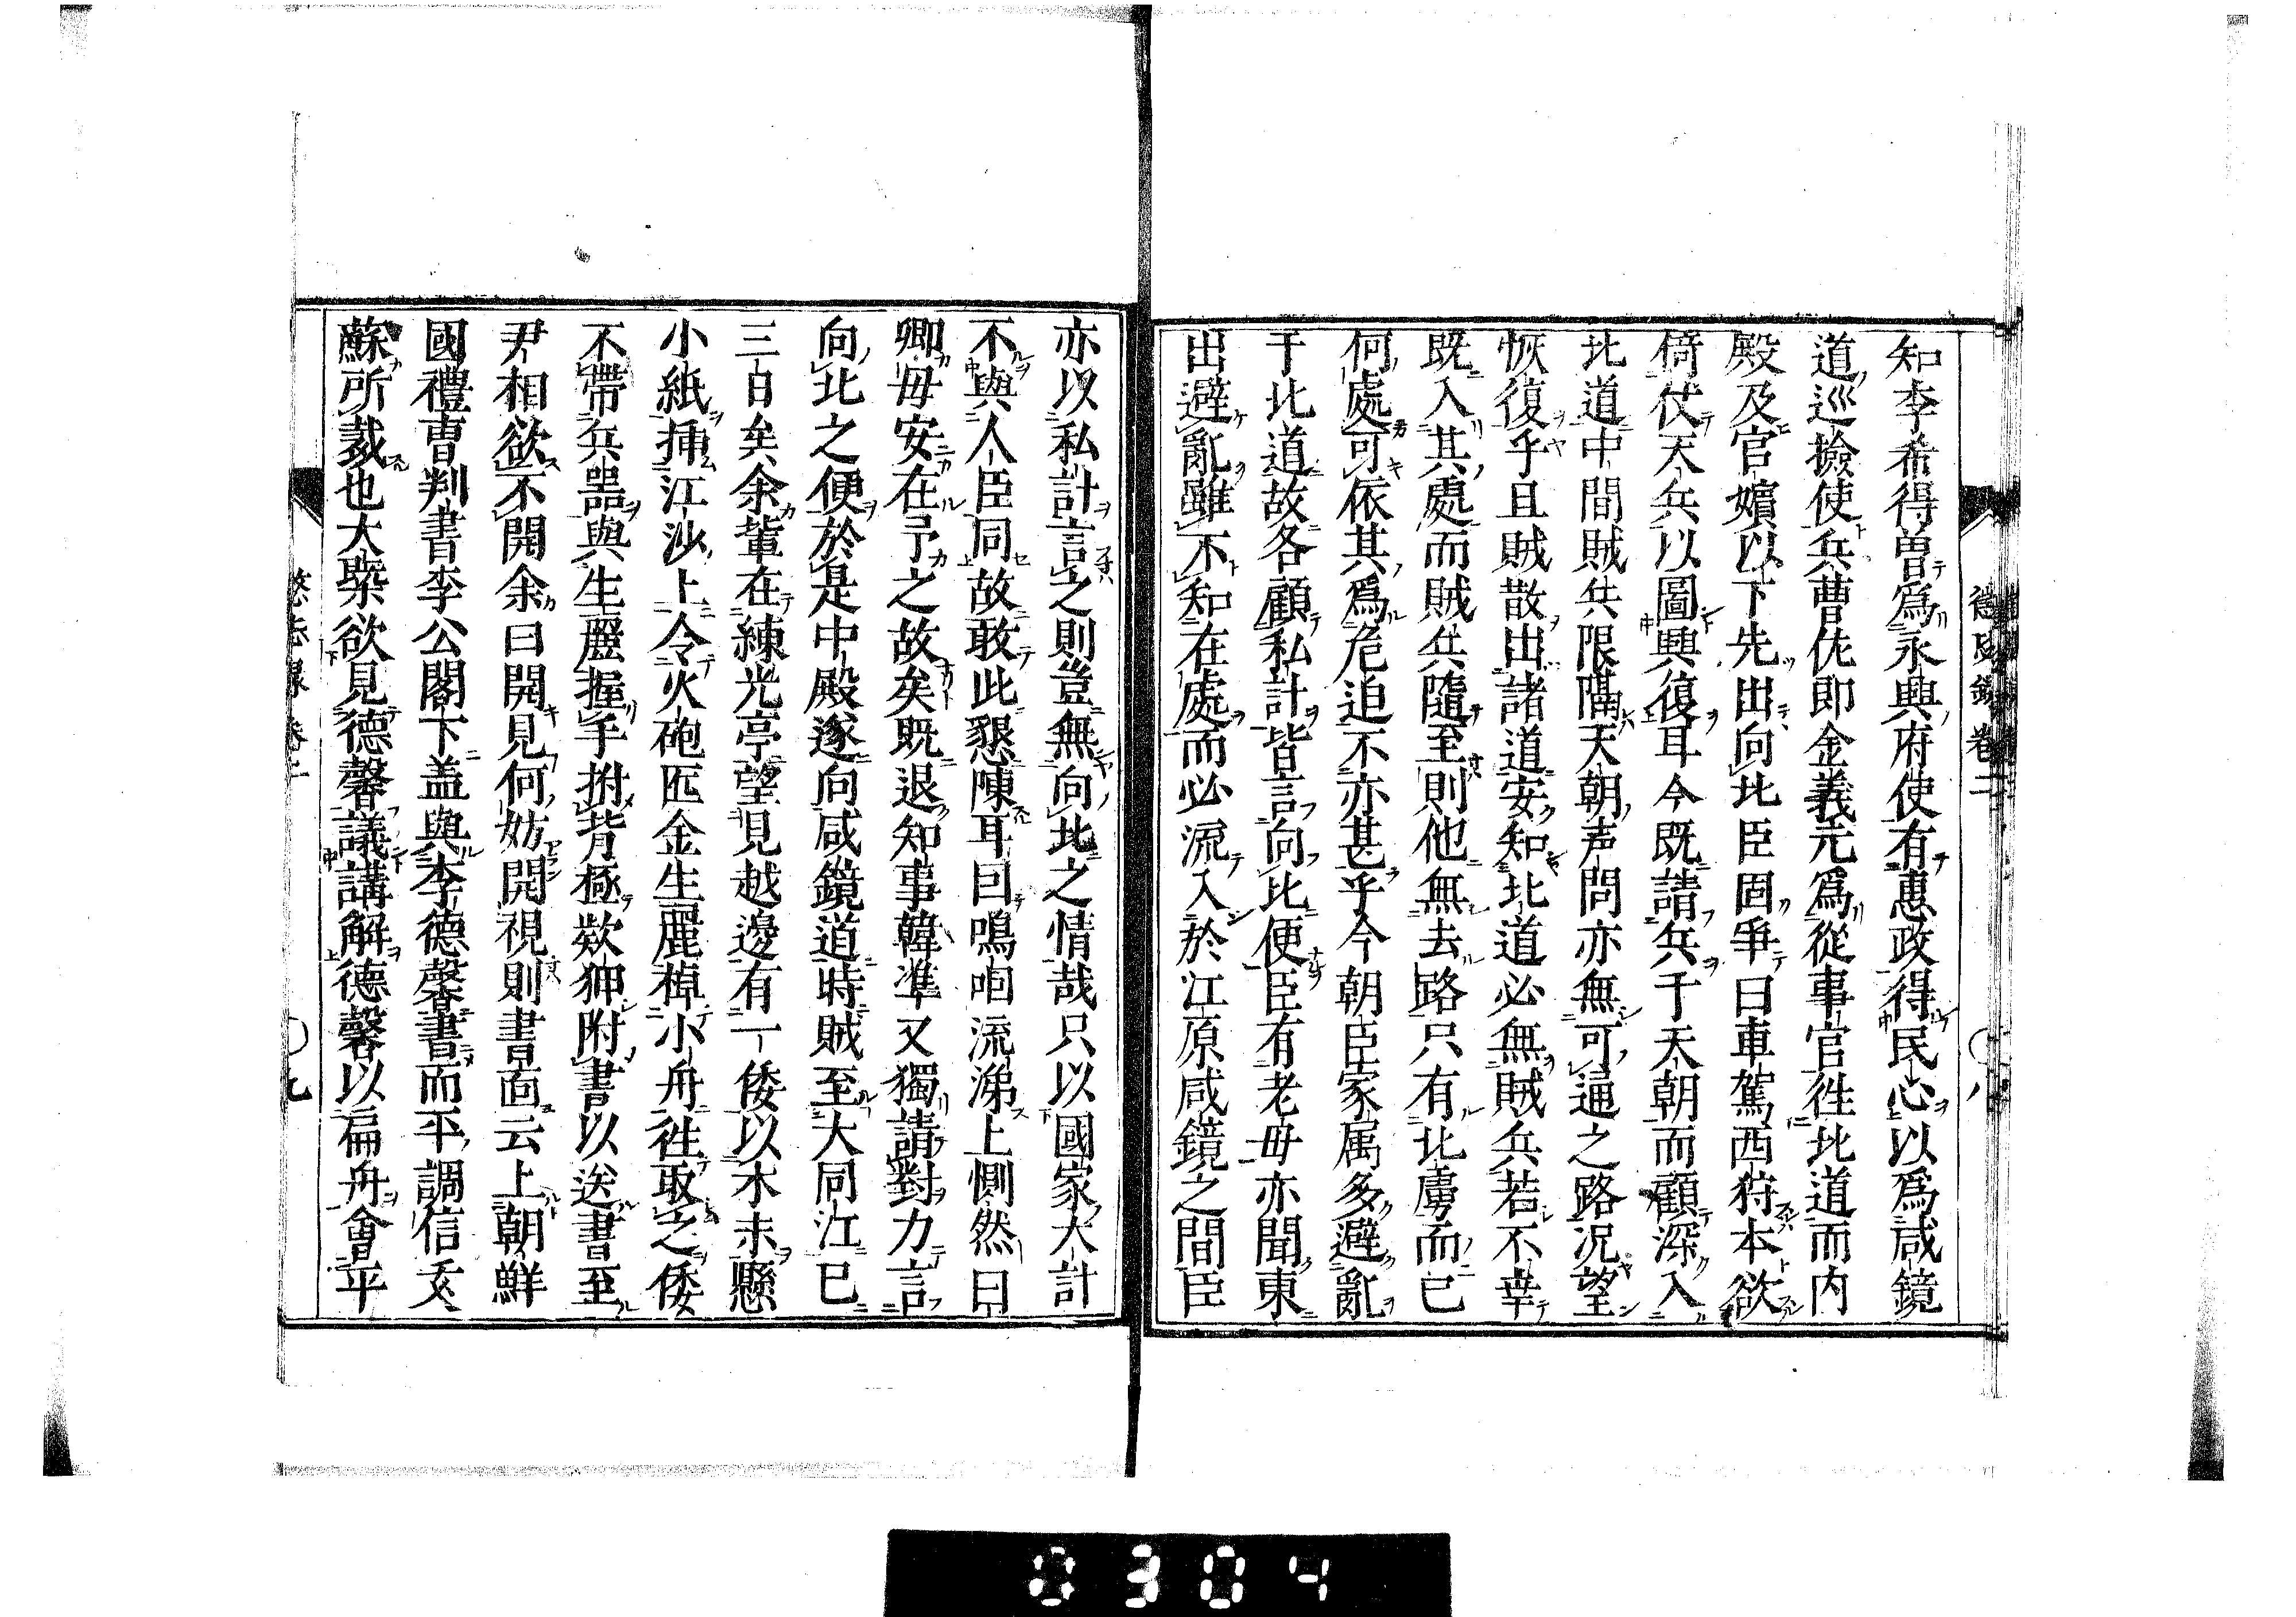 知李希得曾爲永興府使有惠政得民心以爲咸鏡
道巡撿使兵曹佐郎金義元爲從事官徃北道而内
殿及官嬪以下先出向北臣固爭曰車駕西狩本欲
倚仗天兵以圖興復耳今既請兵于天朝而顧深入
北道中間賊兵限隔天朝声問亦無可通之路况望
恢復乎且賊散出諸道安知北道必無賊兵若不幸
既入其處而賊兵隨至則他無去路只有北虜而已
何處可依其爲危迫不亦甚乎今朝臣家属多避亂
于北道故各顧私計皆言向北便臣有老毋亦聞東
出避亂雖不知在處而必流入於江原咸鏡之間臣
亦以私計言之則豈無向北之情哉只以國家大計
不與人臣同故敢此懇陳耳囙嗚咽流涕上惻然曰
卿毋安在予之故矣既退知事韓凖又獨請對力言
向北之便於是中殿遂向咸鏡道時賊至大同江已
三日矣余輩在練光亭望見越邊有一倭以木末懸
小紙挿江沙上令火砲匠金生麗棹小舟徃取之倭
不帶兵器與生麗握手拊背極欵狎附書以送書至
尹相欲不開余曰開見何妨開視則書面云上朝鮮
國禮曹判書李公閣下盖與李德馨書而平調信玄
蘇所裁也大槩欲見德馨議講解德馨以扁舟會平
懲毖録卷二
〇八
懲毖録卷二
〇九
0304